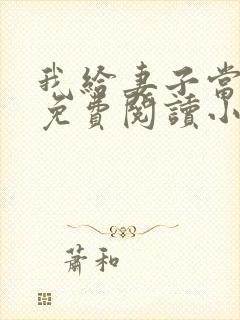 我給妻子當
免費閱讀小
蕭和